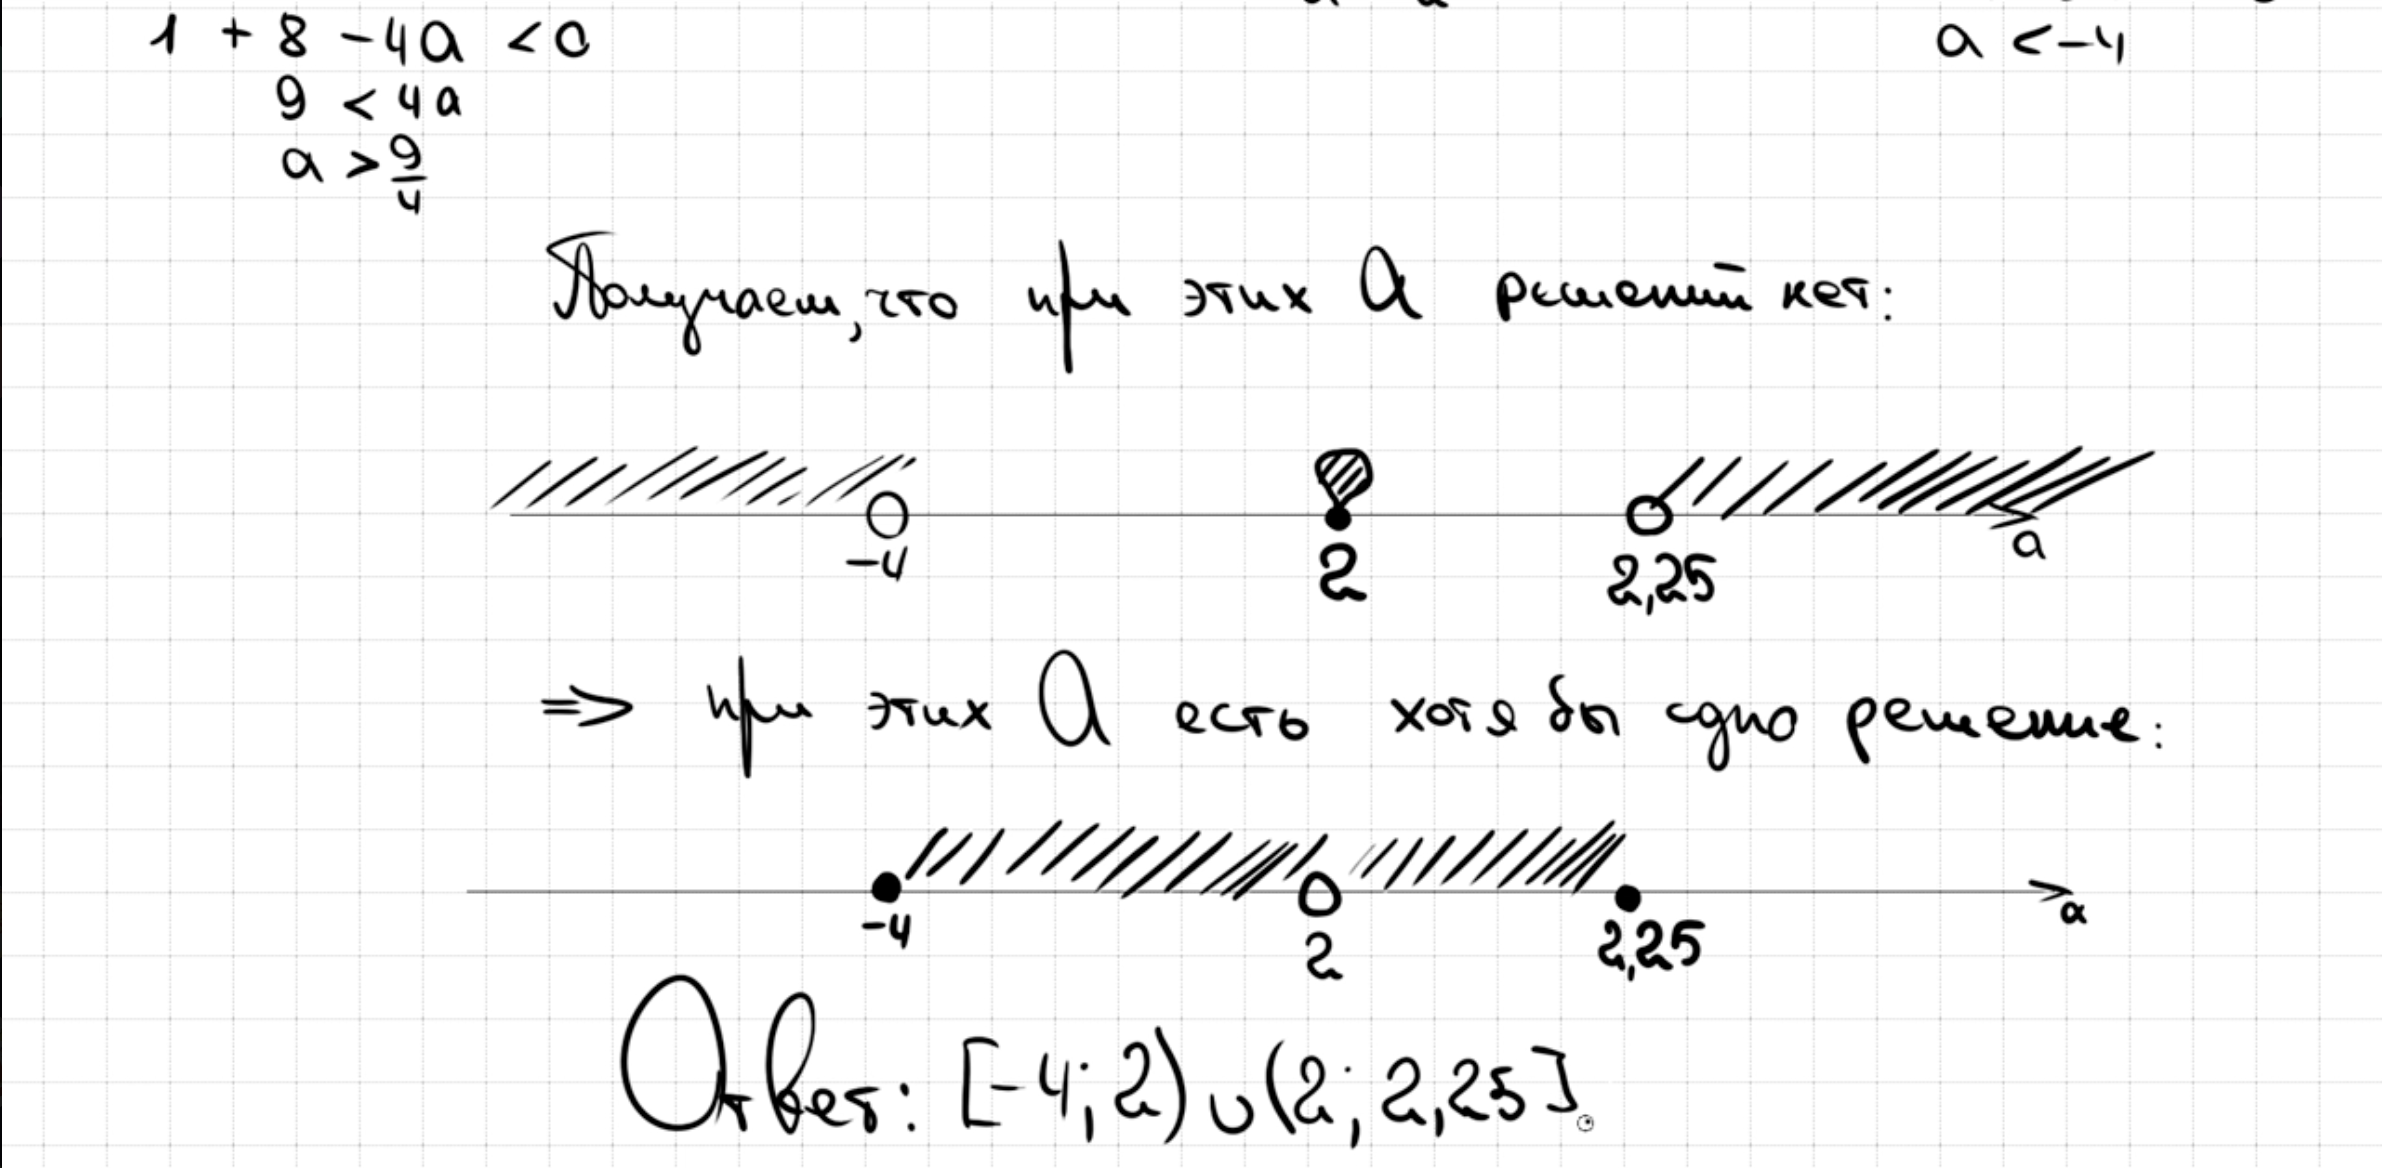 1 + 8 - 4a < 0
a < -4
9 < 4a
a > 9/4
Получаем, что при этих a решений нет:
-4 2 2,25 a
=> при этих a есть хотя бы одно решение:
-4 2 2,25 a
Ответ: [-4; 2) ∪ (2; 2,25].